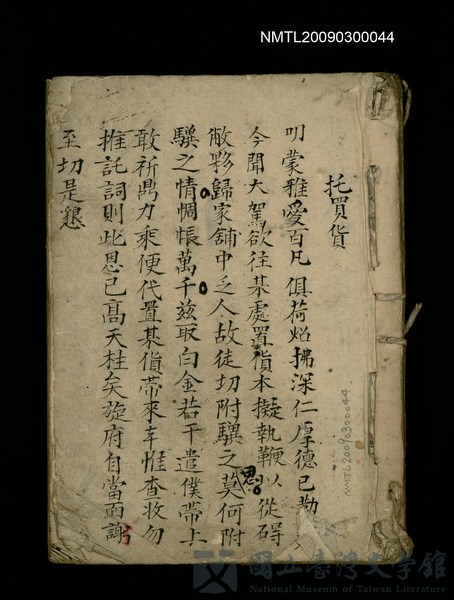 NMTL20090300044
托買貨
叨蒙雅愛百凡俱荷炤拂深仁厚德已勒
今聞大駕欲往某處置貨本擬執鞭以從碍
敝夥歸家舖中乏人故徒切附驥之莫何附
思
驥之情惆悵萬千兹取白金若干遣僕帶上
敢祈鼎力乘便代置某貨帶來幸惟查收勿
推託詞則此恩已高天柱矣旋府自當面謝
至切是懇
NMTL20090300044
國立臺灣文學館
National Museum of Taiwan Literature